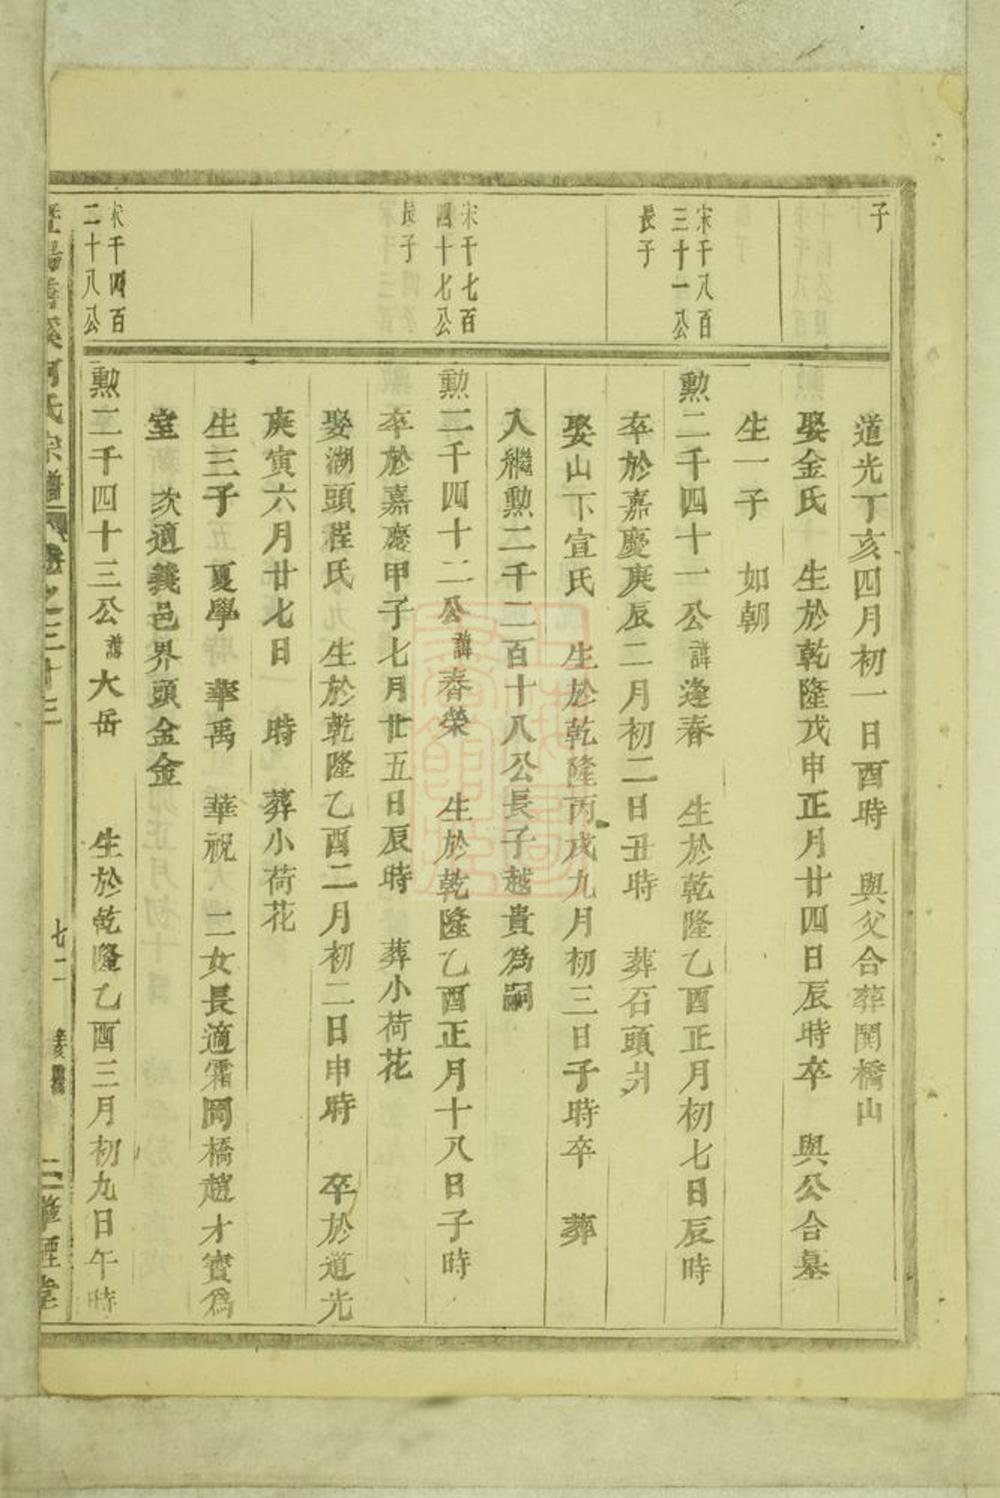 子
道光丁亥四月初一日酉時　與父合葬関橋山
娶金氏　生於乾隆戊申正月廿四日辰時卒　與公合墓
生一子　如朝
宋千八百
三十一公
長子
勲二千四十一公諱逢春　生於乾隆乙酉正月初七日辰時
卒於嘉慶庚辰二月初二日丑時　葬石頭爿
娶山下宣氏　生於乾隆丙戌九月初三日子時卒　葬
入繼勲二千二百十八公長子越貴為嗣
宋千七百
四十七公
長子
勲二千四十二公諱春榮　生於乾隆乙酉正月十八日子時
卒於嘉慶甲子七月廿五日辰時　葬小荷花
娶湖頭程氏　生於乾隆乙酉二月初二日申時　卒於道光
庚寅六月廿七日　時　葬小荷花
生三子　夏學　華禹　華祝　二女長適霜岡橋趙才寳為
室　次適義邑界頭金金
宋千四百
二十八公
勲二千四十三公諱大岳　生於乾隆乙酉三月初九日午時
氏宗譜　卷之三十三　七二